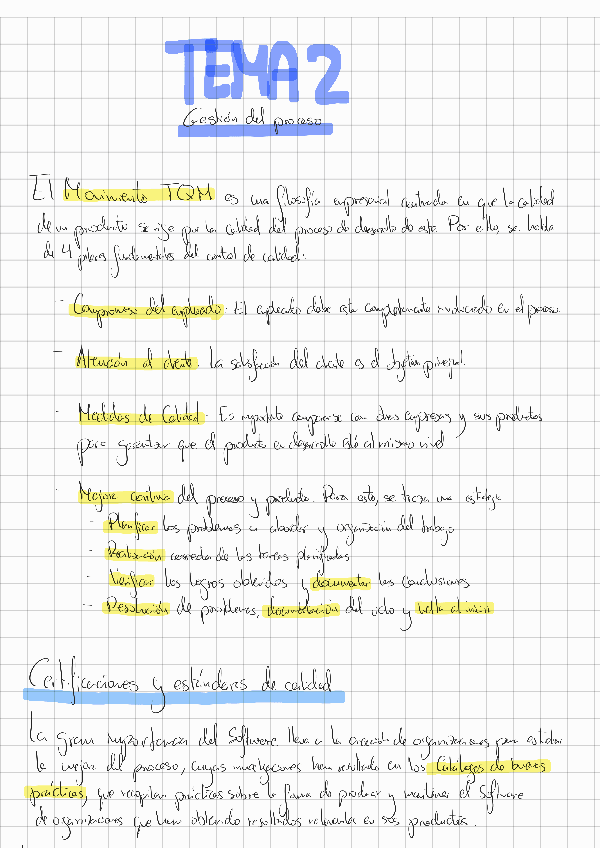 TEMA 2
Gestión del proceso
El Movimiento TQM es una filosofía empresarial centrada en que la calidad
de un producto se rige por la calidad del proceso de desarrollo de este. Por ello, se habla
de 4 pilares fundamentales del control de calidad:
- Compromiso del empleado: El empleado debe estar completamente involucrado en el proceso.
- Atención al cliente. La satisfacción del cliente es el objetivo principal.
- Medidas de Calidad. Es importante compararse con otras empresas y sus productos
para garantizar que el producto en desarrollo está al mismo nivel
- Mejora continua del proceso y producto. Para esto, se traza una estrategia
- Planificar los problemas a abordar y organización del trabajo
- Realización correcta de las tareas planificadas
- Verificar los logros obtenidos y documentar las conclusiones
- Resolución de problemas, documentación del ciclo y vuelta al inicio
Certificaciones y estándares de calidad
La gran importancia del Software lleva a la creación de organizaciones para estudiar
la mejora del proceso, cuyas investigaciones han resultado en los Catálogos de buenas
prácticas, que recopilan prácticas sobre la forma de producir y mantener el Software
de organizaciones que han obtenido resultados relevantes en sus productos.